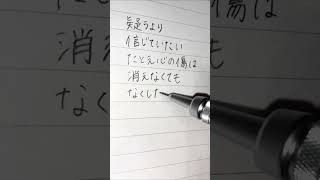 疑うより
信じていたい
たとえ心の傷は
消えなくても
なくした